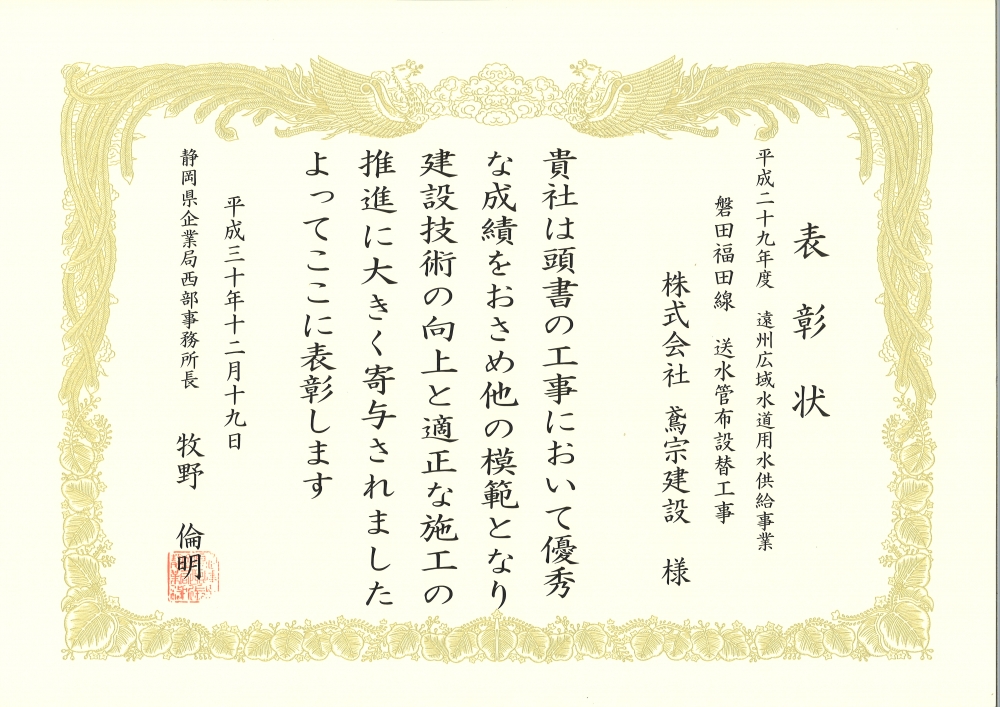 表彰状
平成二十九年度　遠州広域水道用水供給事業
磐田福田線　送水管布設替工事
株式会社　鳶宗建設　様
貴社は頭書の工事において優秀
な成績をおさめ他の模範となり
建設技術の向上と適正な施工の
推進に大きく寄与されました
よってここに表彰します
平成三十年十二月十九日
静岡県企業局西部事務所長　牧野　倫明